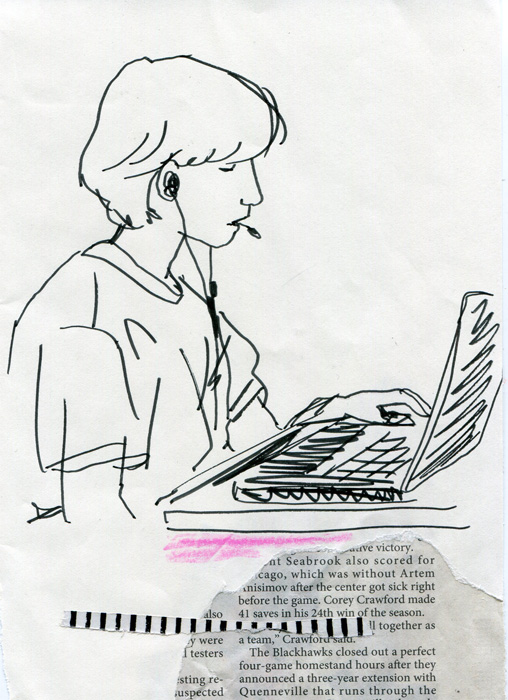 ative victory.
nt Seabrook also scored for
cago, which was without Artem
nisimov after the center got sick right
before the game. Corey Crawford made
also
41 saves in his 24th win of the season.
ll together as
y were
a team,” Crawford said.
l testers
The Blackhawks closed out a perfect
four-game homestand hours after they
sting re-
announced a three-year extension with
suspected
Quenneville that runs through the